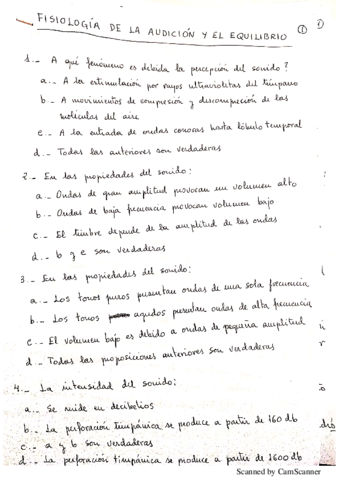 FISIOLOGÍA DE LA AUDICIÓN Y EL EQUILIBRIO ① ①
1.- A qué fenómeno es debida la percepción del sonido?
a.- A la estimulación por rayos ultravioletas del tímpano
b.- A movimientos de compresión y descompresión de las
moléculas del aire
c.- A la entrada de ondas sonoras hasta lóbulo temporal
d.- Todas las anteriores son verdaderas
2.- En las propiedades del sonido:
a.- Ondas de gran amplitud provocan un volumen alto
b.- Ondas de baja frecuencia provocan volumen bajo
c.- El timbre depende de la amplitud de las ondas
d.- b y c son verdaderas
3.- En las propiedades del sonido:
a.- Los tonos puros presentan ondas de una sola frecuencia
b.- Los tonos agudos presentan ondas de alta frecuencia
c.- El volumen bajo es debido a ondas de pequeña amplitud
d.- Todas las proposiciones anteriores son verdaderas
4.- La intensidad del sonido:
a.- Se mide en decibelios
b.- La perforación timpánica se produce a partir de 160 db
c.- a y b son verdaderas
d.- La perforación timpánica se produce a partir de 1600 db
Scanned by CamScanner